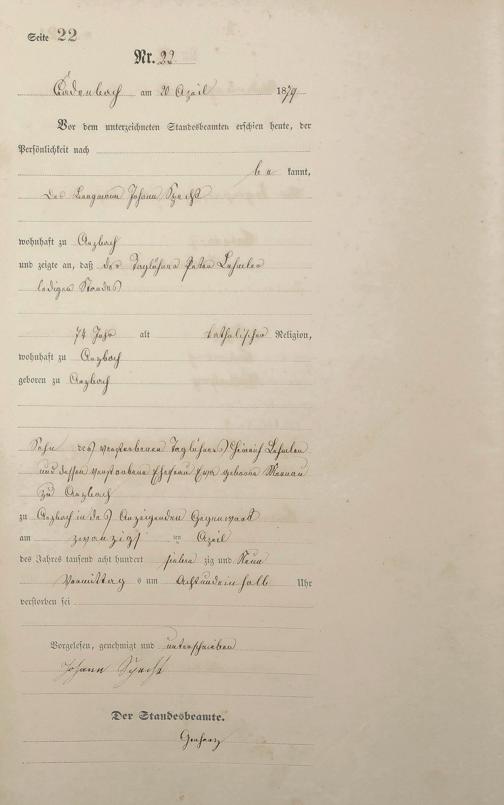 Seite 22
Nr. 22
Cadenbach am 20 April 1879
Vor dem unterzeichneten Standesbeamten erschien heute, der
Persönlichkeit nach
be kannt,
der Bergmann Johann Specht
wohnhaft zu Arzbach
und zeigte an, daß der Taglöhner Peter
ledigen Standes
74 Jahr alt katholischer Religion,
wohnhaft zu Arzbach
geboren zu Arzbach
Sohn des verstorbenen Taglöhners Heinrich
und dessen verstorbene Ehefrau Eva geborene
zu Arzbach
zu Arzbach in des Anzeigenden Gegenwart
am zwanzigs ten April
des Jahres tausend acht hundert sieben zig und Neun
Vormittag s um Achtundeinhalb Uhr
verstorben sei
Vorgelesen, genehmigt und unterschrieben
Johann Specht
Der Standesbeamte.